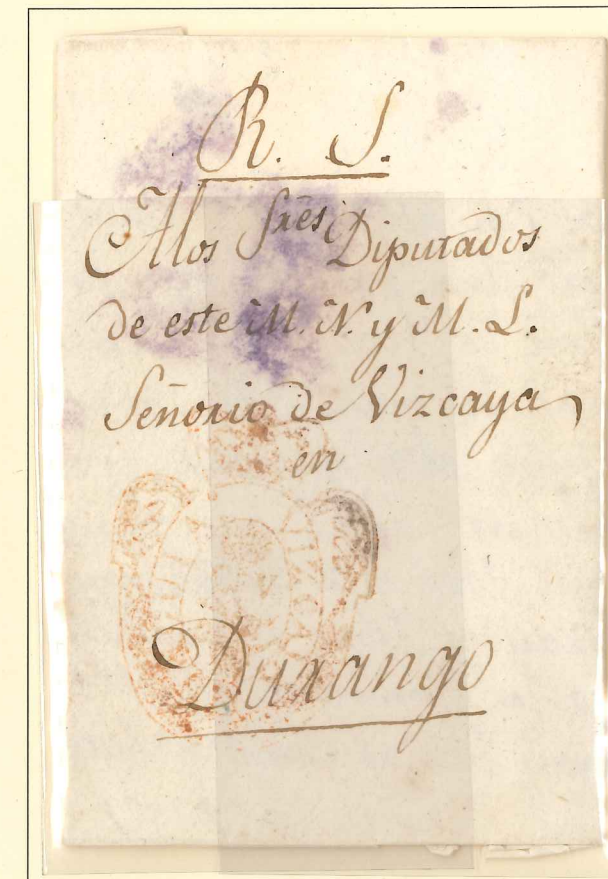 R. S.
A los Sres Diputados
de este M. N. y M. L.
Señorio de Vizcaya
en
Durango